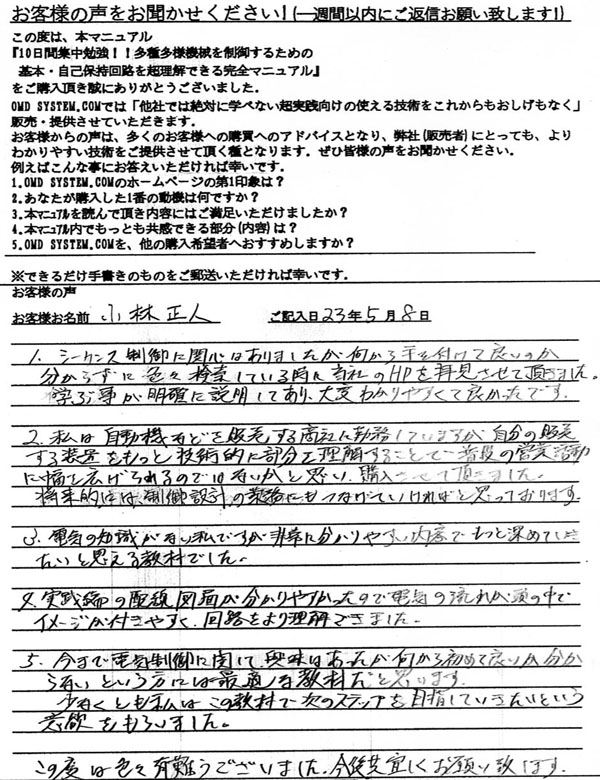 お客様の声をお聞かせください！(一週間以内にご返信お願い致します！)
この度は、本マニュアル
『10日間集中勉強！！多種多様機械を制御するための
基本・自己保持回路を超理解できる完全マニュアル』
をご購入頂き誠にありがとうございました。
OMD SYSTEM.COMでは「他社では絶対に学べない超実践向けの使える技術をこれからもおしげもなく」
販売・提供させていただきます。
お客様からの声は、多くのお客様への購買へのアドバイスとなり、弊社(販売者)にとっても、より
わかりやすい技術をご提供させて頂く種となります。ぜひ皆様の声をお聞かせください。
例えばこんな事にお答えいただければ幸いです。
1.OMD SYSTEM.COMのホームページの第1印象は？
2.あなたが購入した1番の動機は何ですか？
3.本マニュアルを読んで頂き内容にはご満足いただけましたか？
4.本マニュアル内でもっとも共感できる部分(内容)は？
5.OMD SYSTEM.COMを、他の購入希望者へおすすめしますか？
※できるだけ手書きのものをご郵送いただければ幸いです。
お客様の声
お客様お名前 小林正人 ご記入日23年5月8日
1. シーケンス制御に関心はありましたが何から手を付けて良いのか
分からずに色々検索している時に貴社のHPを拝見させて頂きました。
学ぶ事が明確に説明してあり、大変わかりやすくて良かったです。
2. 私は自動機などを販売する商社に勤務していますが、自分の販売
する装置をもっと技術的に部分を理解することで普段の営業活動
に幅を広げられるのではないかと思い、購入させて頂きました。
将来的には、制御設計の業務にもつなげていければと思っております。
3. 電気の知識がない私ですが非常に分かりやすい内容でもっと深めていき
たいと思える教材でした。
4. 実践編の配線図面が分かりやすかったので電気の流れが頭の中で
イメージが付きやすく、回路をより理解できました。
5. 今まで電気制御に関して興味はあったが何から初めて良いか分か
らないという方には最適な教材だと思います。
少なくとも私はこの教材で次のステップを目指していきたいという
意欲をもらいました。
この度は色々有難うございました。今後共宜しくお願い致します。